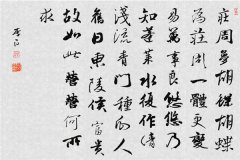 莊周夢胡蝶胡蝶
為莊周一體更變
易萬事良悠悠乃
知蓬萊水復作清
淺流青門種瓜人
舊日東陵侯富貴
故如此營營何所
求